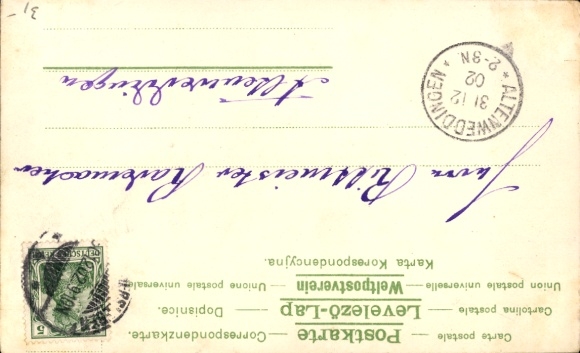 Carte postale — Postkarte — Correspondenzkarte.
Cartolina postale — Levelező-Lap — Dopisnice.
Union postale universelle — Weltpostverein — Unione postale universale
Karta Korespondencyjna.
DEUTSCHES REICH
5
Herrn Rittmeister Rademacher
Altenweddingen
* ALTENWEDDINGEN *
31 12
02
2-3N